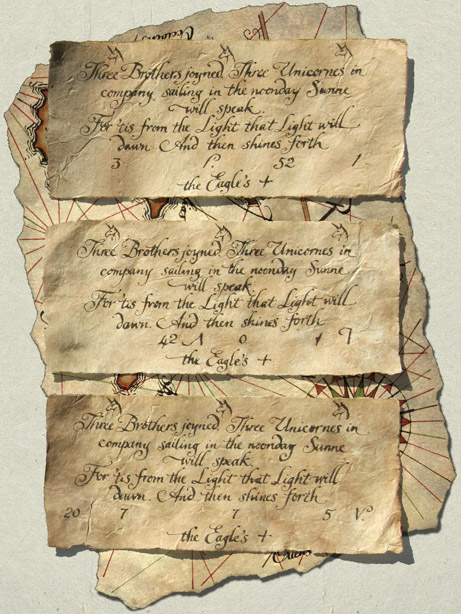 Three Brothers joyned. Three Unicornes in
company sailing in the noonday Sunne
will speak.
For 'tis from the Light that Light will
dawn. And then shines forth
3 52 1
the Eagle's +
Three Brothers joyned. Three Unicornes in
company sailing in the noonday Sunne
will speak.
For 'tis from the Light that Light will
dawn. And then shines forth
42 0
the Eagle's +
Three Brothers joyned. Three Unicornes in
company sailing in the noonday Sunne
will speak.
For 'tis from the Light that Light will
dawn. And then shines forth
20 7 7 5 V.º
the Eagle's +